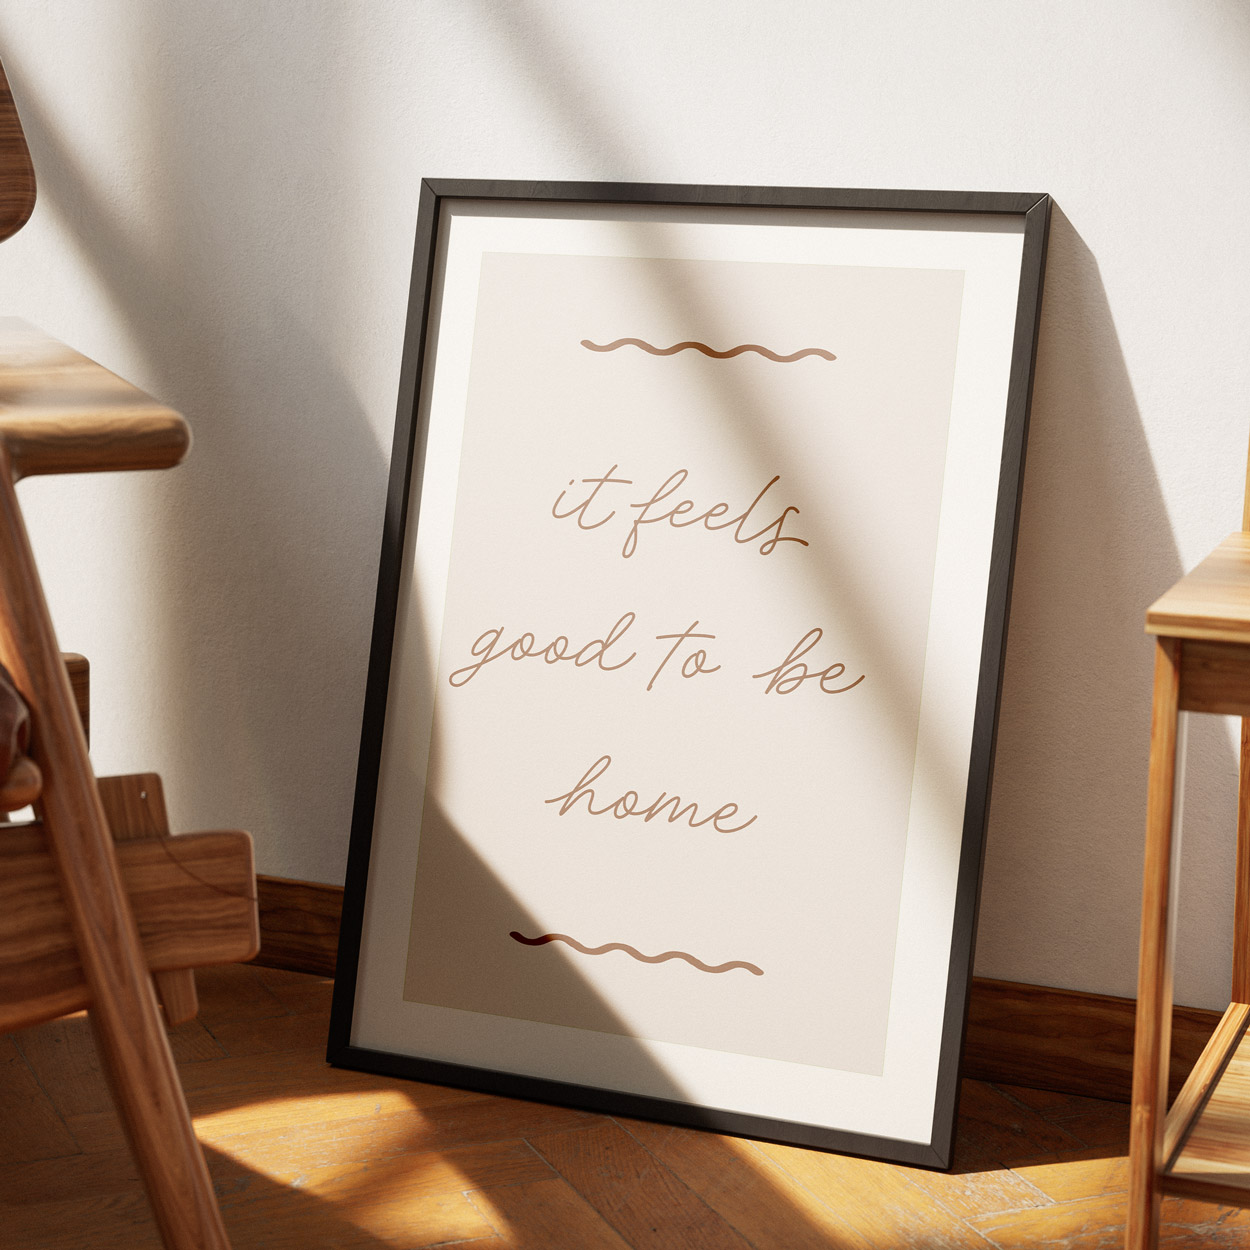 it feels
good to be
home